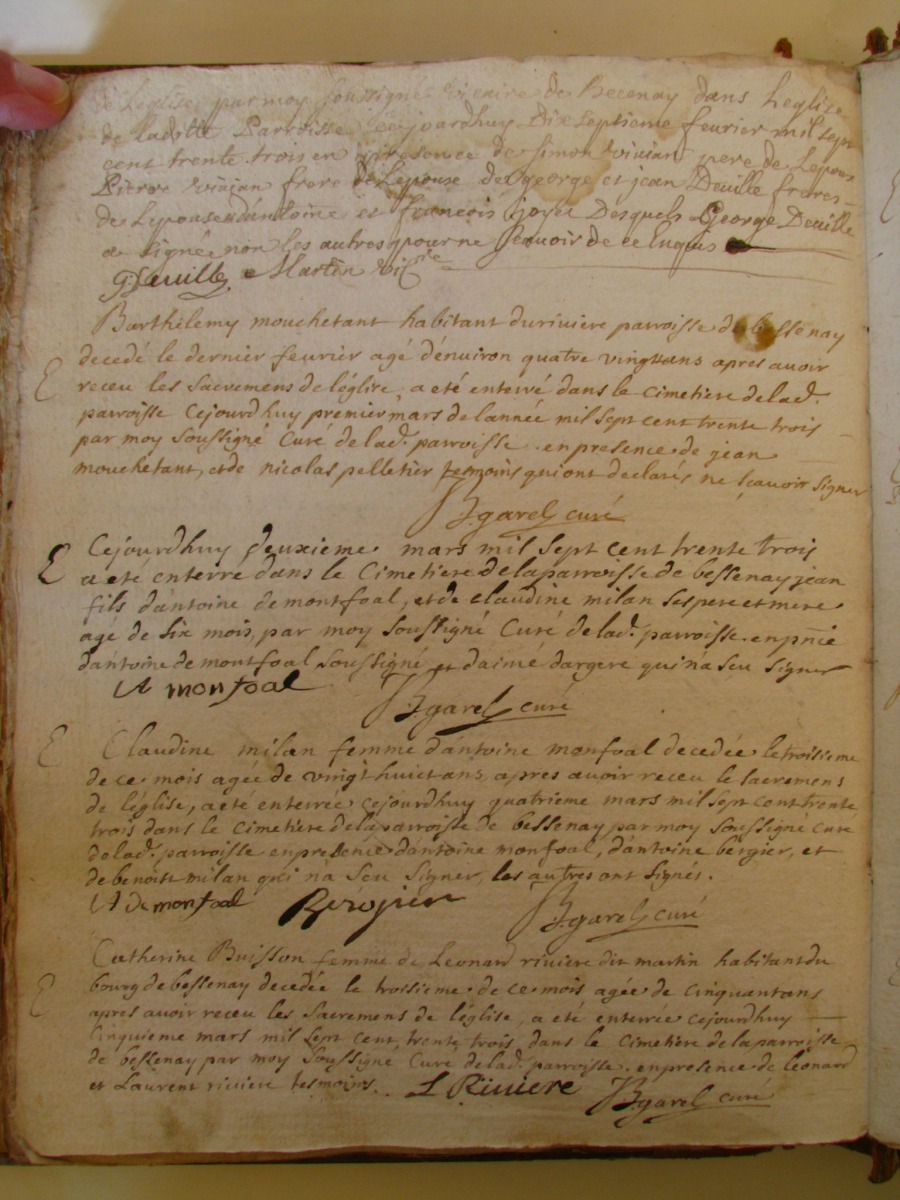 de leglise par moy soussigné vicaire de Becenay dans leglise
de laditte Parroisse cejourdhuy Dix septieme feurier mil sept
cent trente trois en presence de Simon viuian pere de Lepoux
Pierre viuian frere de Lepouse de george et jean Deuille freres
de Lepouse dantoine et francois joyet Desquels George Deuille
a signé non les autres pour ne scauoir de ce Enquis
G Deuille Martin vic.re
Barthelemy mouchetant habitant du riuiere parroisse de bessenay
decedé le dernier feurier agé d'enuiron quatre vingtans apres auoir
E receu les sacremens de l'église, a eté enterré dans le cimetiere de lad.
parroisse cejourdhuy premier mars de lannée mil sept cent trente trois
par moy soussigné curé de lad. parroisse en presence de jean
mouchetant, et de nicolas pelletier tesmoins qui ont declarés ne sçauoir signer
B. garel curé
Cejourdhuy deuxieme mars mil sept cent trente trois
E a eté enterré dans le cimetiere de la parroisse de bessenay jean
fils d'antoine de montfoal, et de claudine milan ses pere et mere
agé de six mois, par moy soussigné curé de lad. parroisse en pñce
d'antoine de montfoal soussigné et d'aimé dargere qui na sçu signer
A monfoal B. garel curé
E Claudine milan femme d'antoine monfoal decedée le troisieme
de ce mois agée de vingt huict ans apres auoir receu le sacremens
de l'église, a eté enterrée cejourdhuy quatrieme mars mil sept cent trente
trois dans le cimetiere de la parroisse de bessenay par moy soussigné curé
de lad. parroisse en presence d'antoine monfoal, d'antoine bergier, et
de benoist milan qui nà sçu signer, les autres ont signés.
A de monfoal Bergier B. garel curé
Catherine Buisson femme de Leonard riuiere dit martin habitant du
E bourg de bessenay decedée le troisieme de ce mois agée de cinquantans
apres auoir receu les sacremens de l'église, a eté enterrée cejourdhuy
cinquieme mars mil sept cent trente trois dans le cimetiere de la parroisse
de bessenay par moy soussigné curé de lad. parroisse en presence de leonard
et Laurent riuiere tesmoins. L Riuiere B. garel curé